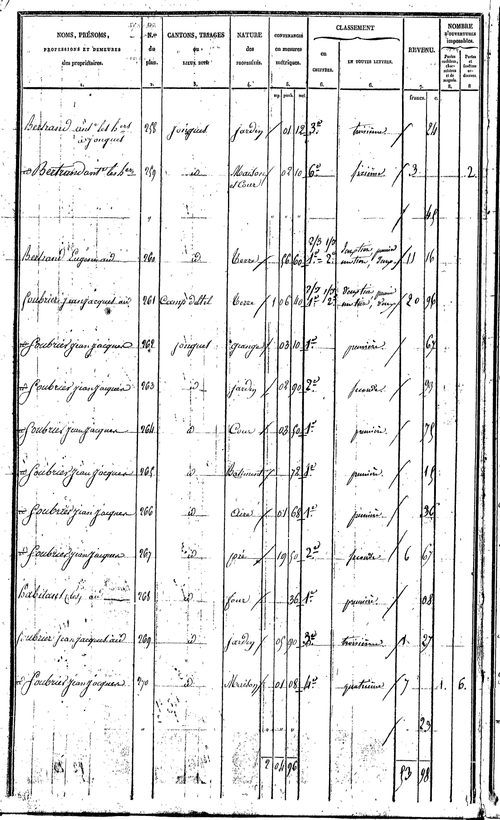 NOMS, PRÉNOMS, PROFESSIONS ET DEMEURES des propriétaires.
N.os du plan.
CANTONS, TRIAGES ou LIEUX DITS
NATURE des
CONTENANCES en mesures métriques.
CLASSEMENT
en CHIFFRES.
EN TOUTES LETTRES.
REVENU.
NOMBRE D'OUVERTURES imposables.
francs. c.
Bertrand ant.e les h.ers à jonquet 258 jonquet jardin 01 12 3e troisième 24
Bertrand ant les h.ers 259 id Maison et Cour 02 10 6e sixième 3 2
" " 45
Bertrand Eugène aud 260 id Terre 56 60 2/3 1/3 1e = 2e 11 16
Soubrier jean jacques aud 261 Terre 1 06 40 2/3 1/3 1e 2e 20 96
Soubrier jean jacques 262 jonquet grange 03 10 1e première 67
Soubrier jean jacques 263 id jardin 02 90 2e seconde 93
Soubrier jean jacques 264 id Cour 03 50 1e première 75
Soubrier jean jacques 265 id Batiment 72 1e première 15
Soubrier jean jacques 266 id aire 01 68 1e première 36
Soubrier jean jacques 267 id pré 19 50 2e seconde 6 67
habitant (les) aud 268 id four 36 1e première 08
Soubrier jean jacques aud 269 id jardin 05 90 3e troisième 1 27
Soubrier jean jacques 270 id Maison 01 08 4e quatrième 7 1. 6.
23
2 04 96 53 98